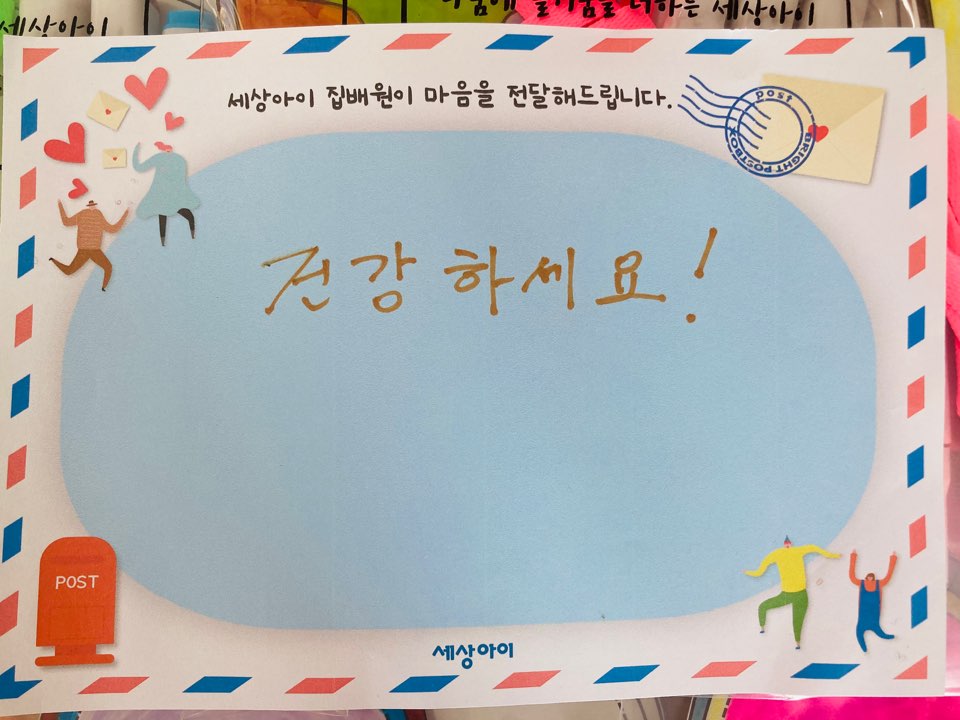 세상아이
즐거움을 더하는 세상아이
세상아이 집배원이 마음을 전달해드립니다.
post
BRIGHT POSTBOX
건강하세요!
POST
세상아이